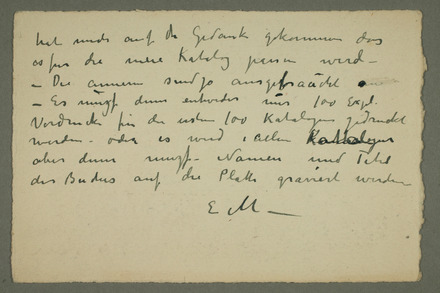 hat mich auf den Gedank gekommen das
es für die neue Katalog passen wird -
- Die anneren sind ja ausgebraucht
- Es muss denn entweder nur 100 Expl.
Vordrucke für die ersten 100 Katalogen gedruckt
werden - oder es wird allen Katalogen
aber dann muss - Namen und Titel
des Buches auf die Platte graviert werden
E M -